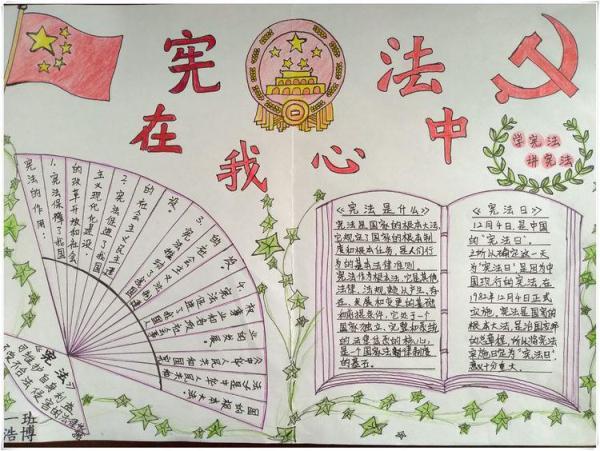 宪法
在我心中
学宪法
讲宪法
宪法的作用：
1. 宪法保障了我国
的改革开放和社会
主义现代化建设；
2. 宪法促进了我国
的社会主义民主建
设；
3. 宪法推动了我国
的社会主义法制
建设；
4. 宪法促进了我国人
权事业和各项社会事
业的发展。
《中华人民共和国宪
法》是中华人民共和
国的根本大法
《宪法》
一班
浩博
《宪法是什么》
宪法是国家的根本大法，
它规定了国家的根本制
度和根本任务，是人们行
为的基本法律准则。
宪法作为根本法，它是其他
法律、法规赖以产生、存
在、发展和变更的基础
和前提条件，它处于一个
国家独立、完整和系统
的法律体系的核心，
是一个国家法律制度
的基石。
《宪法日》
12月4日，是中国
的“宪法日”。
之所以确定这一天
为“宪法日”，是因为中
国现行的宪法，在
1982年12月4日正式
实施，宪法是国家的
根本大法，是治国安邦
的总章程，所以将宪法
实施日定为“宪法日”，
意义十分重大。